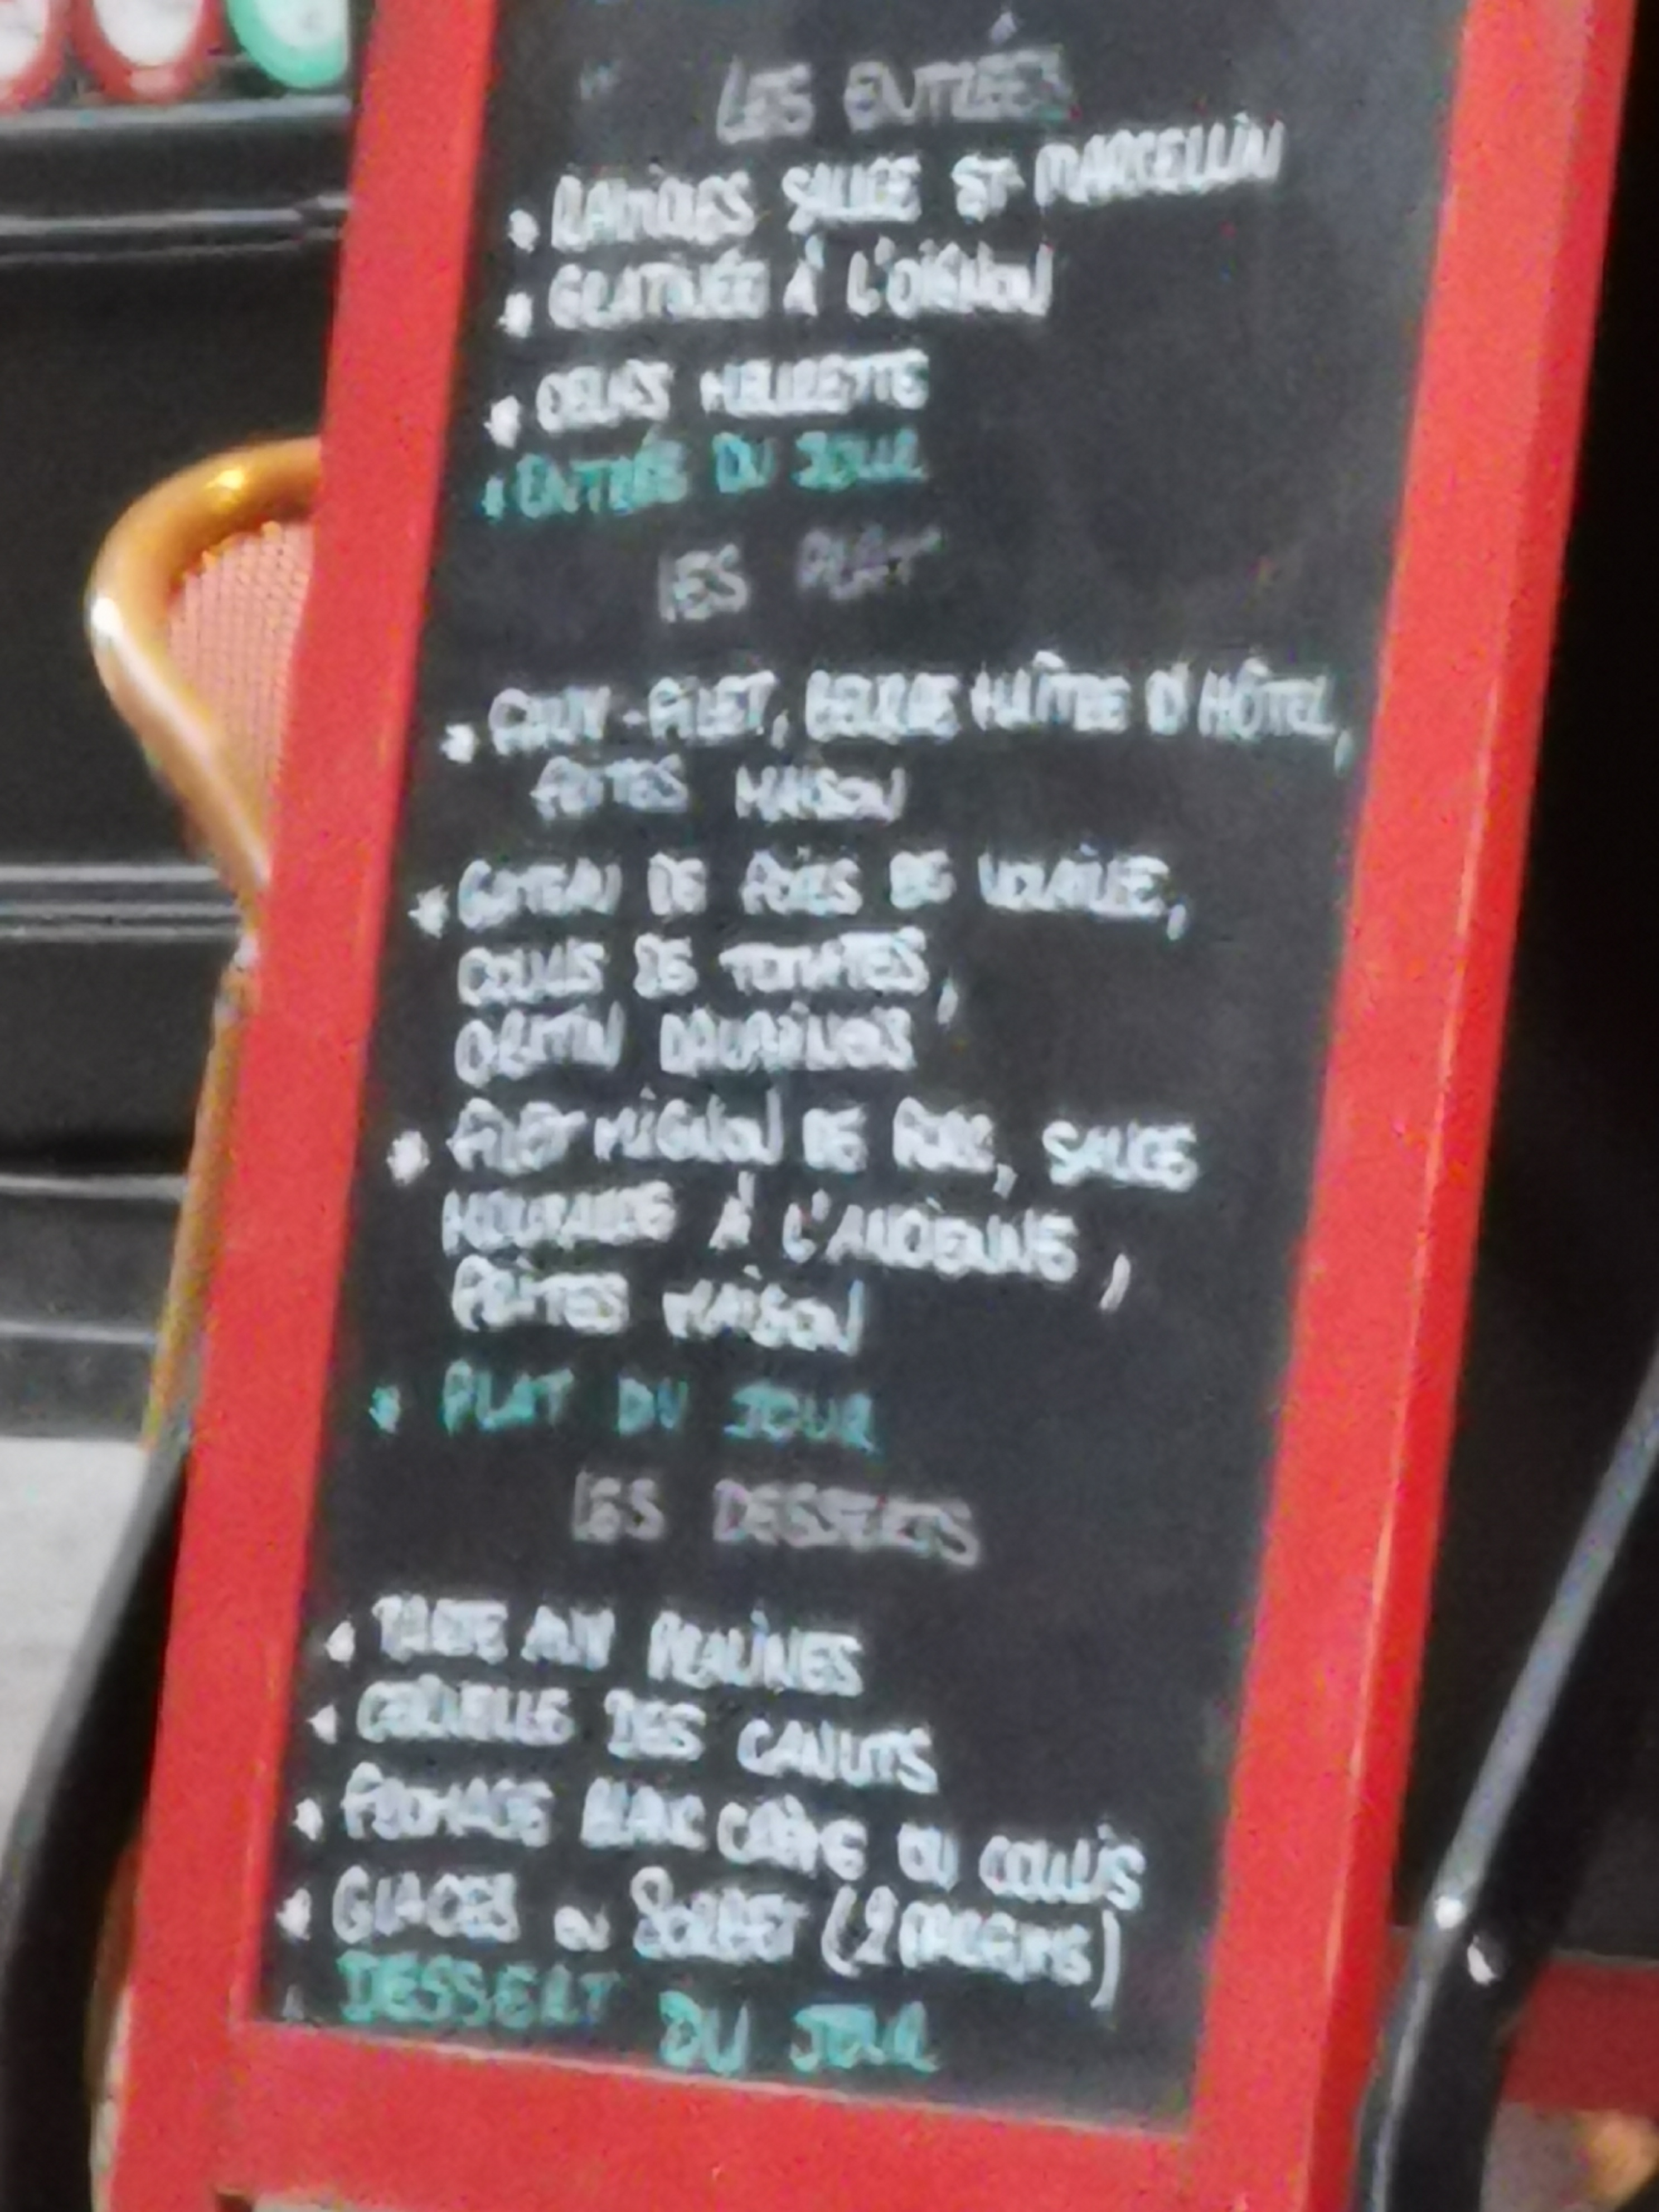 LES ENTRÉES
RAVIOLES SAUCE ST MARCELLIN
GRATINÉE À L'OIGNON
OEUFS MEURETTE
ENTRÉE DU JOUR
LES PLAT
FAUX-FILET, BEURRE MAÎTRE D'HÔTEL,
FRITES MAISON
GATEAU DE FOIES DE VOLAILLE,
COULIS DE TOMATES,
GRATIN DAUPHINOIS
FILET MIGNON DE PORC, SAUCE
MOUTARDE À L'ANCIENNE,
FRITES MAISON
PLAT DU JOUR
LES DESSERTS
TARTE AUX PRALINES
CERVELLE DES CANUTS
FROMAGE BLANC CRÈME OU COULIS
GLACES OU SORBET (2 PARFUMS)
DESSERT DU JOUR